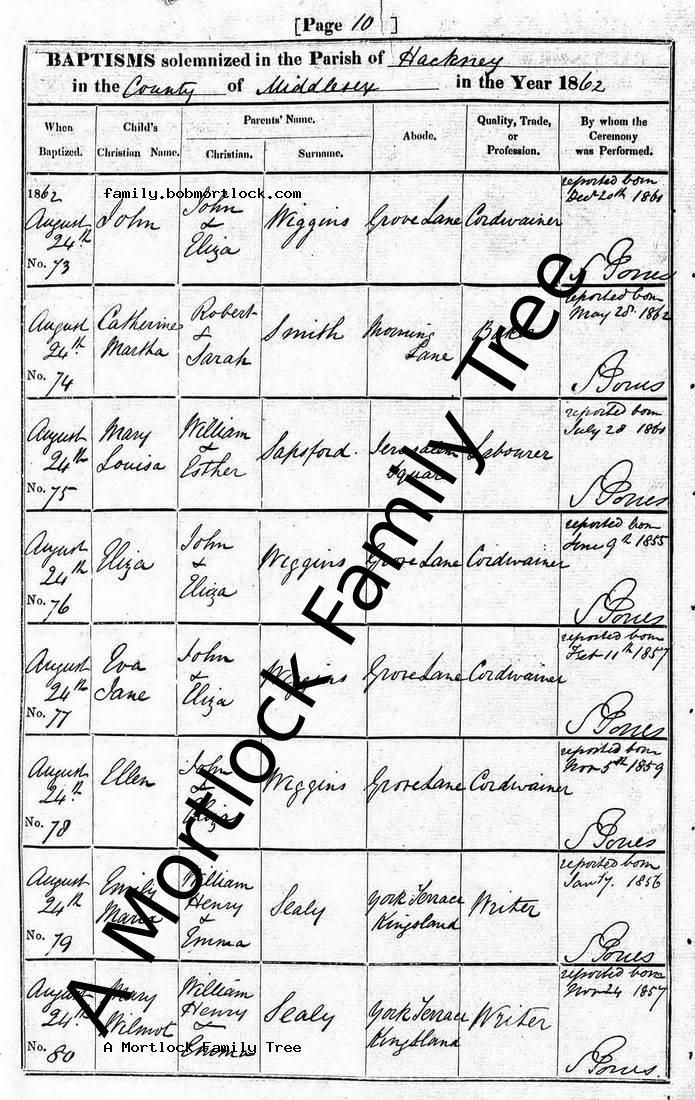 [Page 10 ]
BAPTISMS solemnized in the Parish of Hackney
in the County of Middlesex in the Year 1862
When Baptized. Child's Christian Name. Parents' Name. Christian. Surname. Abode. Quality, Trade, or Profession. By whom the Ceremony was Performed.
family.bobmortlock.com
1862 August 24th No. 73 John John & Eliza Wiggins Grove Lane Cordwainer reported born Decr 20th S Jones
August 24th No. 74 Catherine Martha Robert & Sarah Smith Morning Lane Baker reported born May 28. 1862 S Jones
August 24th No. 75 Mary Louisa William & Esther Sapsford. Jerusalem Square Labourer reported born July 28 S Jones
August 24th No. 76 Eliza John & Eliza Wiggins Grove Lane Cordwainer reported born June 9th 1855 S Jones
August 24th No. 77 Eva Jane John & Eliza Wiggins Grove Lane Cordwainer reported born Feb 11th 1857 S Jones
August 24th No. 78 Ellen John & Eliza Wiggins Grove Lane Cordwainer reported born Nov 5th 1859 S Jones
August 24th No. 79 Emily Maria William Henry & Emma Sealy York Terrace Kingsland Writer reported born 1856 S Jones
August 24th No. 80 Mary Wilmot William Henry & Emma Sealy York Terrace Kingsland Writer reported born Nov 24 1857 S Jones.
A Mortlock Family Tree
A Mortlock Family Tree